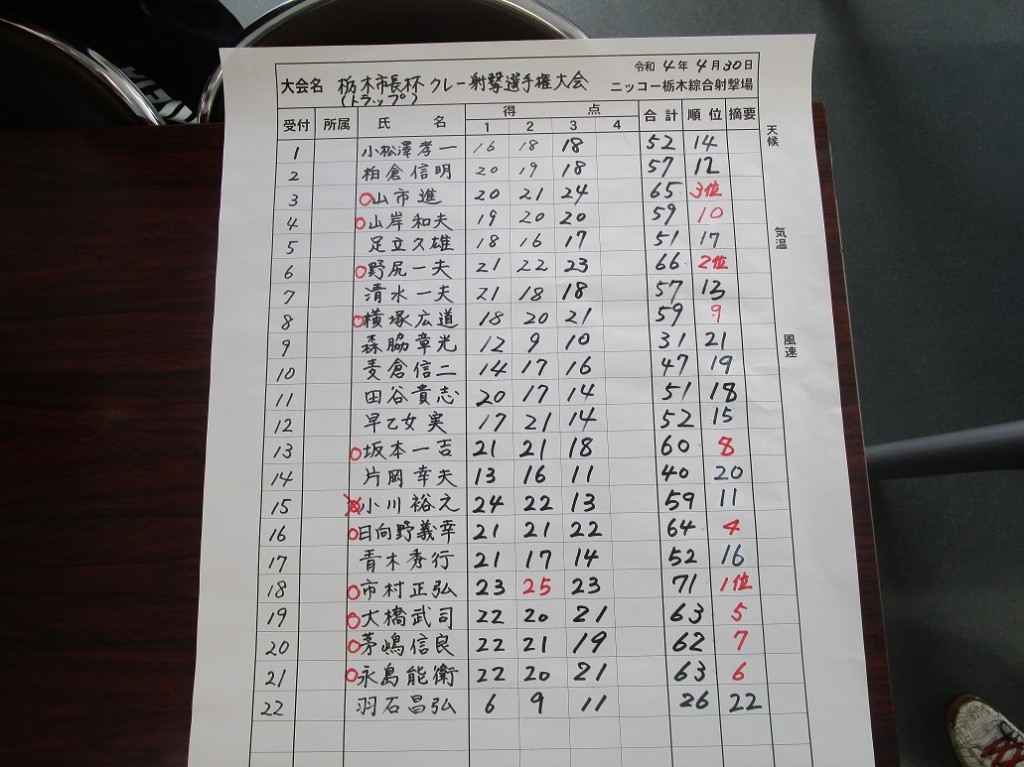 令和 4 年 4 月 30 日
大会名 栃木市長杯 クレー射撃選手権大会 ニッコー栃木綜合射撃場
(トラップ)
受付 所属 氏 名 得 点 合計 順位 摘要
1 2 3 4
天候
1 小松澤孝一 16 18 18 52 14
2 柏倉信明 20 19 18 57 12
3 ○山市進 20 21 24 65 3位
4 ○山岸和夫 19 20 20 59 10
気温
5 足立久雄 18 16 17 51 17
6 ○野尻一夫 21 22 23 66 2位
7 清水一夫 21 18 18 57 13
8 ○横塚広道 18 20 21 59 9
風速
9 森脇章光 12 9 10 31 21
10 麦倉信二 14 17 16 47 19
11 田谷貴志 20 17 14 51 18
12 早乙女実 17 21 14 52 15
13 ○坂本一吉 21 21 18 60 8
14 片岡幸夫 13 16 11 40 20
15 小川裕之 24 22 13 59 11
16 ○日向野義幸 21 21 22 64 4
17 青木秀行 21 17 14 52 16
18 ○市村正弘 23 25 23 71 1位
19 ○大橋武司 22 20 21 63 5
20 ○茅嶋信良 22 21 19 62 7
21 ○永島能衛 22 20 21 63 6
22 羽石昌弘 6 9 11 26 22